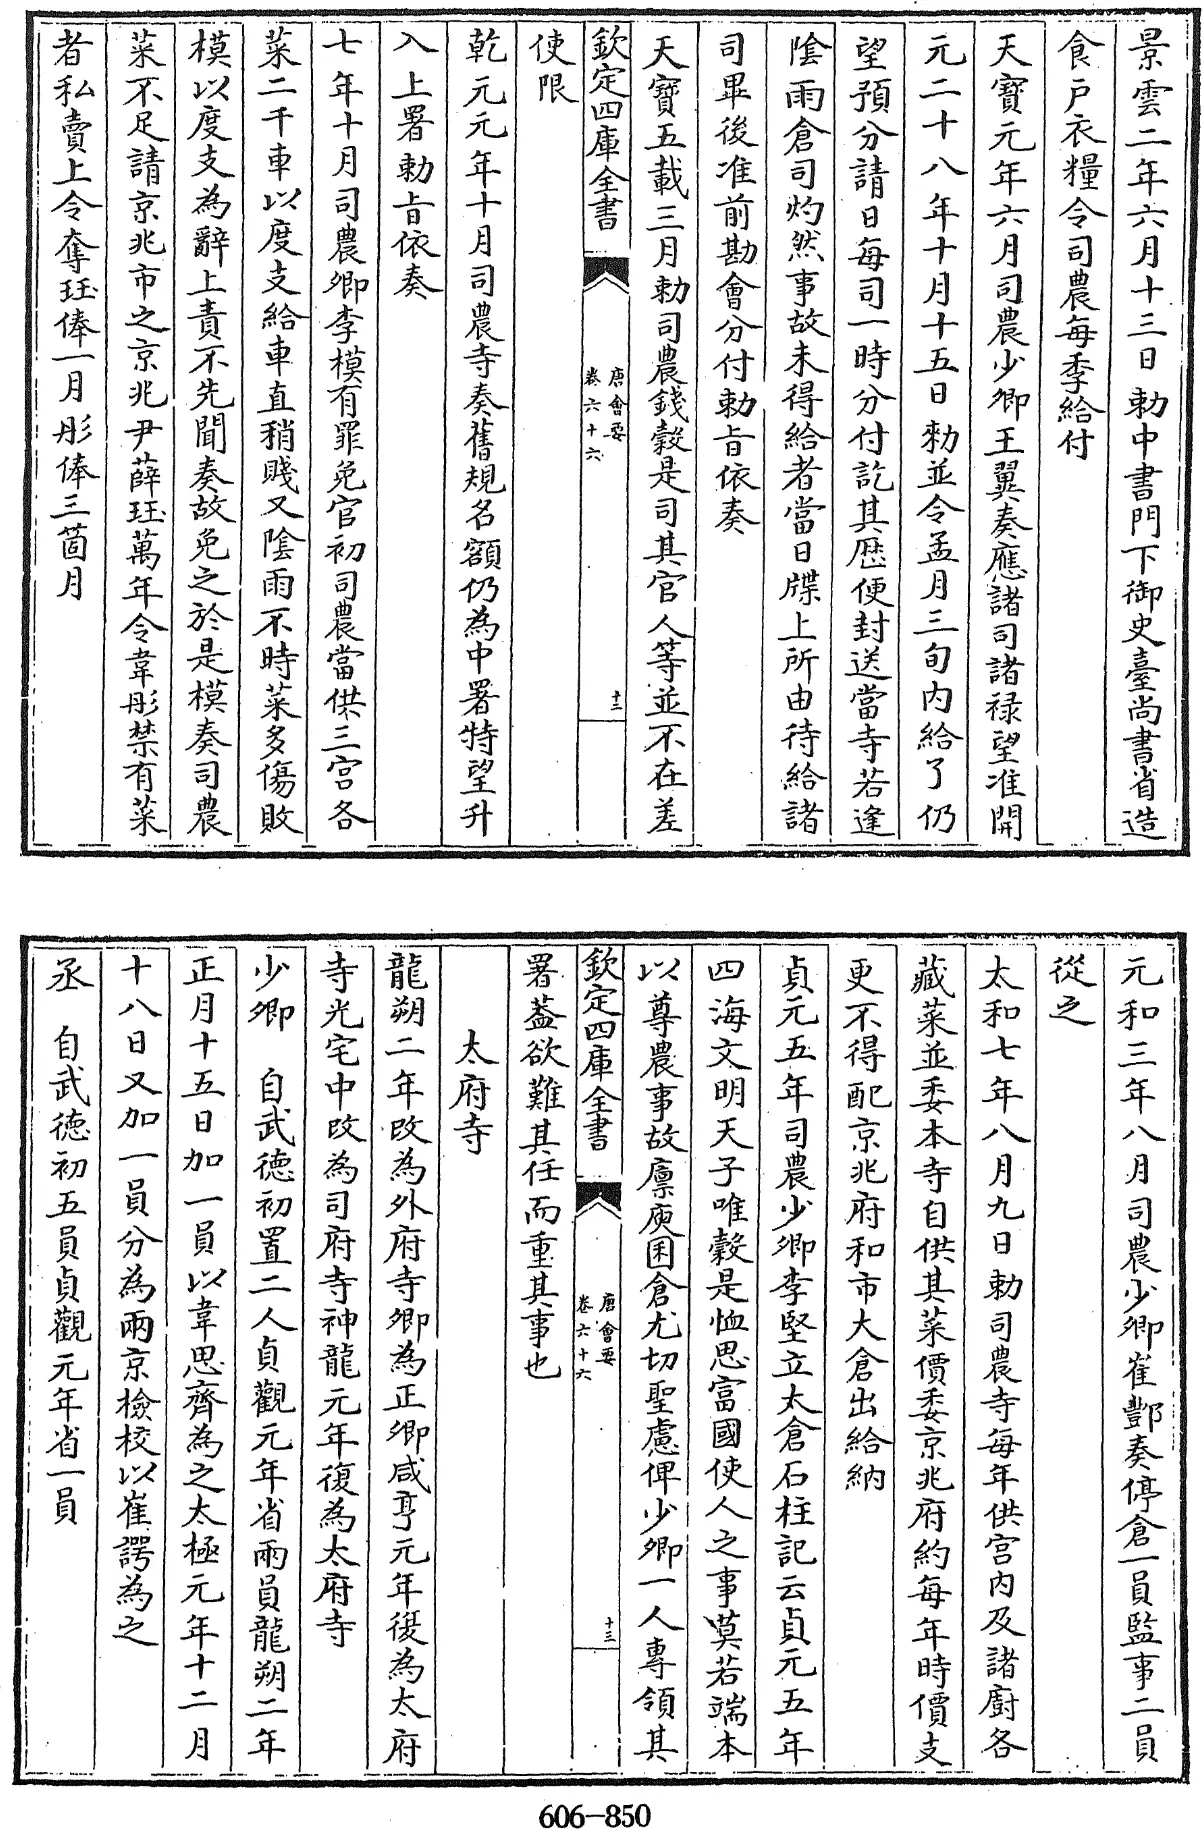 景雲二年六月十三日勅中書門下御史臺尚書省造
食戶衣糧令司農每季給付
天寶元年六月司農少卿王翼奏應諸司諸祿望准開
元二十八年十月十五日勅並令孟月三旬內給了仍
望預分請日每司一時分付訖其歷便封送當寺若逢
陰雨倉司灼然事故未得給者當日牒上所由待給諸
司畢後准前勘會分付勅旨依奏
天寶五載三月勅司農錢穀是司其官人等並不在差
欽定四庫全書
唐會要
卷六十六
十二
使限
乾元元年十月司農寺奏舊規名額仍為中署特望升
入上署勅旨依奏
七年十月司農卿李模有罪免官初司農當供三宮各
菜二千車以度支給車直稍賤又陰雨不時菜多傷敗
模以度支為辭上責不先聞奏故免之於是模奏司農
菜不足請京兆市之京兆尹薛珏萬年令韋彤禁有菜
者私賣上令奪珏俸一月彤俸三箇月
元和三年八月司農少卿崔酆奏停倉一員監事二員
從之
太和七年八月九日勅司農寺每年供宮內及諸廚各
藏菜並委本寺自供其菜價委京兆府約每年時價支
更不得配京兆府和市大倉出給納
貞元五年司農少卿李堅立太倉石柱記云貞元五年
四海文明天子唯穀是恤思富國使人之事莫若端本
以尊農事故廪庾囷倉尤切聖慮俾少卿一人專領其
欽定四庫全書
唐會要
卷六十六
十三
署葢欲難其任而重其事也
太府寺
龍朔二年改為外府寺卿為正卿咸亨元年復為太府
寺光宅中改為司府寺神龍元年復為太府寺
少卿 自武德初置二人貞觀元年省兩員龍朔二年
正月十五日加一員以韋思齊為之太極元年十二月
十八日又加一員分為兩京檢校以崔諤為之
丞 自武德初五員貞觀元年省一員
606-850